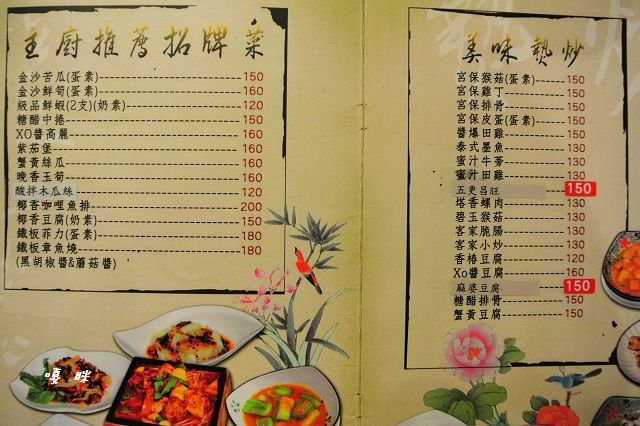 主廚推薦招牌菜
金沙苦瓜(蛋素)------150
金沙鮮筍(蛋素)------160
級品鮮蝦(2支)(奶素)------120
糖醋中捲------150
XO醬高麗------160
紫茄堡------160
蟹黃絲瓜------160
晚香玉筍------160
酸拌木瓜絲------120
椰香咖哩魚排------200
椰香豆腐(奶素)------150
鐵板菲力(蛋素)------180
鐵板章魚燒------180
(黑胡椒醬&蘑菇醬)
嘎 眯
美味熱炒
宮保猴菇(蛋素)------150
宮保雞丁------150
宮保排骨------150
宮保皮蛋(蛋素)------150
醬爆田雞------150
泰式墨魚------130
蜜汁牛蒡------130
蜜汁田雞------130
五更昌旺 150
塔香螺肉------130
碧玉猴菇------130
客家脆腸------130
客家小炒------130
香椿豆腐------120
Xo醬豆腐------160
麻婆豆腐 150
糖醋排骨------150
蟹黃豆腐------150